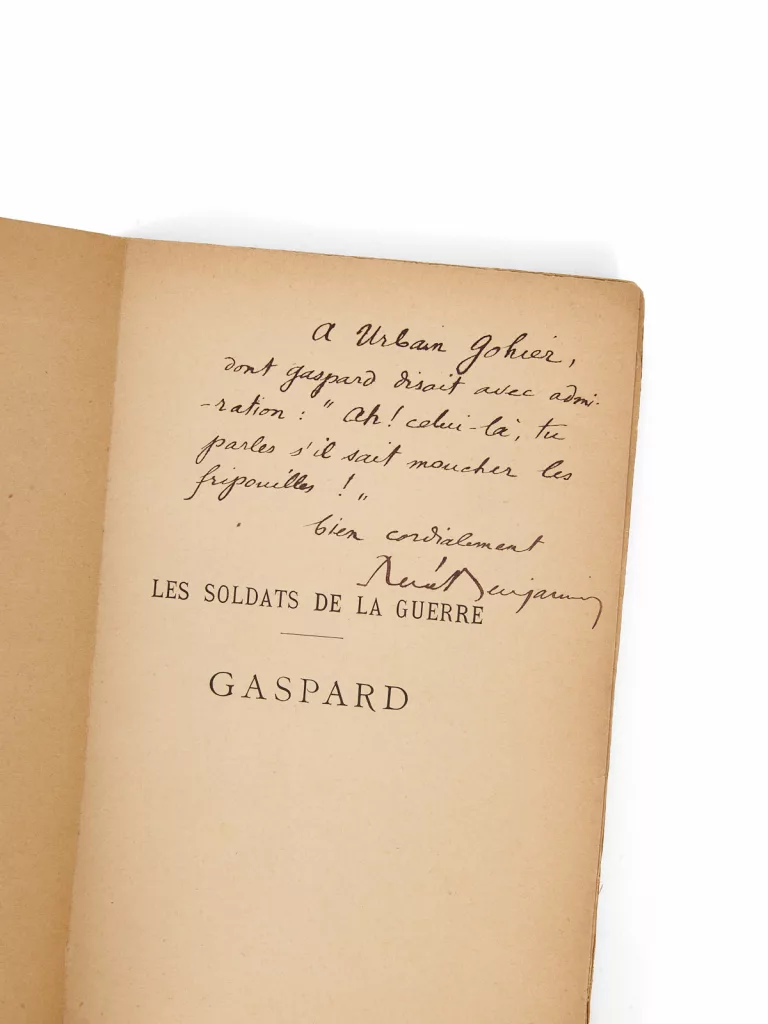 A Urbain Gohier,
dont Gaspard disait avec admi-
-ration : " Ah ! celui-là, tu
parles s'il sait moucher les
fripouilles ! "
bien cordialement
René Benjamin
LES SOLDATS DE LA GUERRE
GASPARD